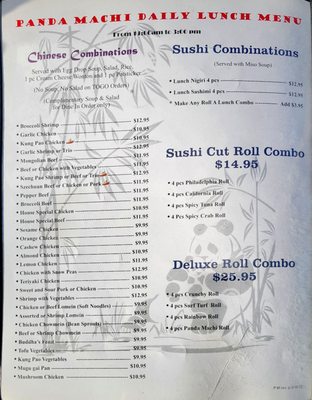 PANDA MACHI DAILY LUNCH MENU
From 11:00am to 3:00 pm
Chinese Combinations
Served with Egg Drop Soup, Salad, Rice,
1 pc Cream Cheese Wonton and 1 pc Potsticker
(No Soup, No Salad on TOGO Orders)
(Complimentary Soup & Salad
For Dine In Order only)
• Broccoli Shrimp $12.95
• Garlic Chicken
• Kung Pao Chicken
• Garlic Shrimp or Trio
• Mongolian Beef
• Beef or Chicken with Vegetables
• Kung Pao Shrimp or Beef or Trio
• Szechuan Beef or Chicken or Pork
• Pepper Beef
• Broccoli Beef
• House Special Chicken
• House Special Beef
• Sesame Chicken
• Orange Chicken
• Cashew Chicken
• Almond Chicken
• Lemon Chicken
• Chicken with Snow Peas
• Teriyaki Chicken
• Sweet and Sour Pork or Chicken
• Shrimp with Vegetables $12.95
• Chicken or Beef Lomein (Soft Noodles) $9.95
• Assorted or Shrimp Lomein
• Chicken Chowmein (Bean Sprouts)
• Beef or Shrimp Chowmein
• Buddha's Feast
• Tofu Vegetables $9.95
• Kung Pao Vegetables $9.95
• Mugu gai Pan $10.95
• Mushroom Chicken $10.95
Sushi Combinations
(Served with Miso Soup)
• Lunch Nigiri 4 pcs $12.95
• Lunch Sashimi 4 pcs $12.95
• Make Any Roll A Lunch Combo Add $3.95
Sushi Cut Roll Combo
$14.95
• 4 pcs Philadelphia Roll
• 4 pcs California Roll
• 4 pcs Spicy Tuna Roll
• 4 pcs Spicy Crab Roll
Deluxe Roll Combo
$25.95
• 4 pcs Crunchy Roll
• 4 pcs Surf Turf Roll
• 4 pcs Rainbow Roll
• 4 pcs Panda Machi Roll